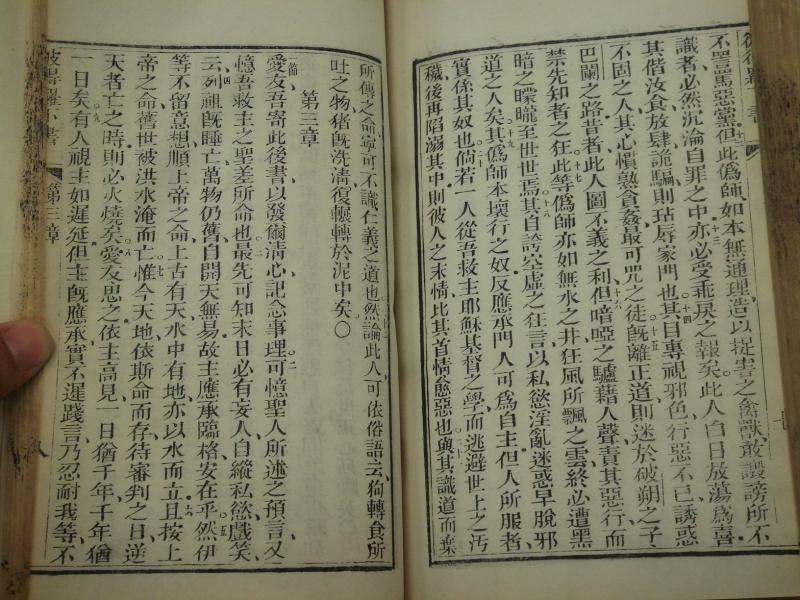 彼得 書
不罵詈惡黨但此偽師如本無連理造以捉害之禽獸敢讟謗所不
識者必然沉淪自罪之中亦必受乖戾之報矣此人白日放蕩為喜
其偕汝食放肆詭騙則玷辱家門也其目專視邪色行惡不已誘惑
不固之人其心慣熟貪姦最可咒之徒既離正道則迷於破朔之子
巴蘭之路昔者此人圖不義之利但喑啞之驢藉人聲責其惡行而
禁先知者之狂此等偽師亦如無水之井狂風所飄之雲終必遭黑
暗之矇矓至世世焉其自誇空虛之狂言以私慾淫亂迷惑早脫邪
道之人矣其偽師本壞行之奴反應承門人可為自主但人所服者
實係其奴也倘若一人從吾救主耶穌基督之學而逃避世上之污
穢後再陷溺其中則彼人之末情比其首情愈惡也與其識道而棄
所傳之命寧可不識仁義之道也然論此人可依俗語云狗轉食所
吐之物猪既洗清復輾轉於泥中矣○
第三章
節愛友吾寄此後書以發爾清心記念事理可憶聖人所述之預言又
憶吾救主之聖差所命也最先可知末日必有妄人自縱私慾戲笑
云列祖既睡亡萬物仍舊自開天無易故主應承臨格安在乎然伊
等不留意想順上帝之命上古有天水中有地亦以水而立且按上
帝之命舊世被洪水淹而亡惟今天地依斯命而存待審判之日逆
天者亡之時則必火燒矣愛友思之依主高見一日猶千年千年猶
一日矣有人視主如遲延但主既應承實不遲踐言乃忍耐我等不
彼得 書 第三章